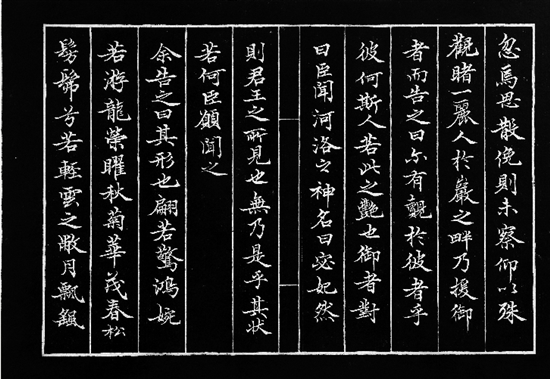 忽焉思散俛則未察仰以殊
觀睹一麗人於巖之畔乃援御
者而告之曰尔有覿於彼者乎
彼何斯人若此之艷也御者對
曰臣聞河洛之神名曰宓妃然
則君王之所見也無乃是乎其狀
若何臣願聞之
余告之曰其形也翩若驚鴻婉
若游龍榮曜秋菊華茂春松
髣髴兮若輕雲之蔽月飄飖